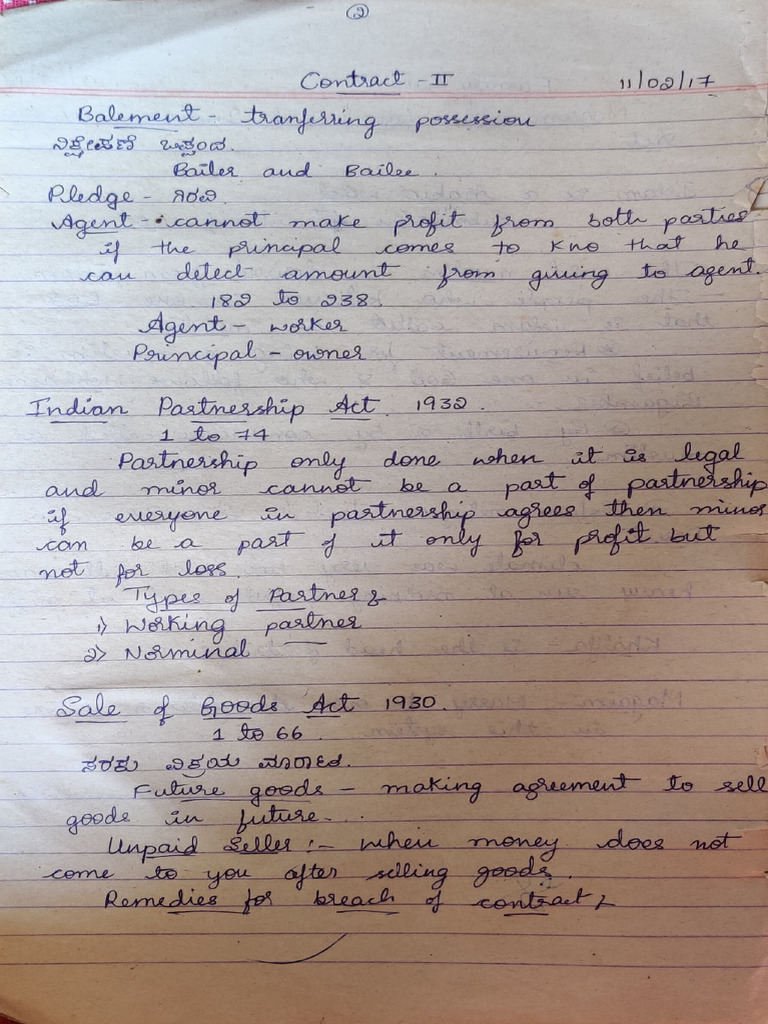 ②
Contract - II 11/02/17
Balement - tranferring possession
ನಿಕ್ಷೇಪಣೆ ಒಪ್ಪಂದ.
Bailer and Bailee.
Pledge - ಗಿರವಿ
Agent - cannot make profit from both parties
if the principal comes to kno that he
can detect amount from giving to agent.
182 to 238
Agent - worker
Principal - owner
Indian Partnership Act. 1932.
1 to 74
Partnership only done when it is legal
and minor cannot be a part of partnership
if everyone in partnership agrees then minor
can be a part of it only for profit but
not for loss.
Types of Partner
1) Working partner
2) Norminal
Sale of Goods Act 1930.
1 to 66.
ಸರಕು ವಿಕ್ರಯ
Future goods - making agreement to sell
goods in future...
Unpaid Seller :- when money does not
come to you after selling goods.
Remedies for breach of contract